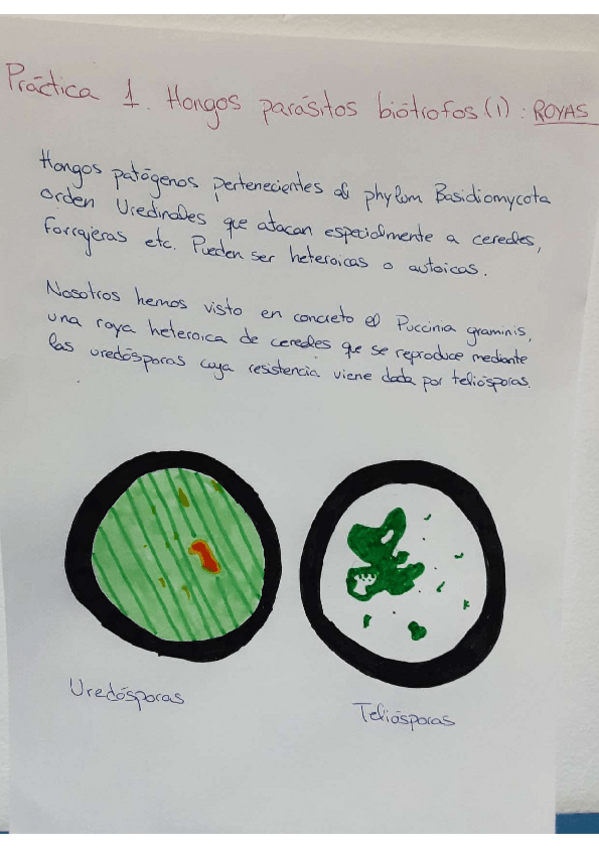 Práctica 1. Hongos parásitos biótrofos (1): ROYAS
Hongos patógenos pertenecientes al phylum Basidiomycota
orden Uredinales que atacan especialmente a cereales,
forrajeras etc. Pueden ser heteroicas o autoicas.
Nosotros hemos visto en concreto el Puccinia graminis,
una roya heteroica de cereales que se reproduce mediante
las uredósporas cuya resistencia viene dada por teliósporas.
Uredósporas
Teliósporas